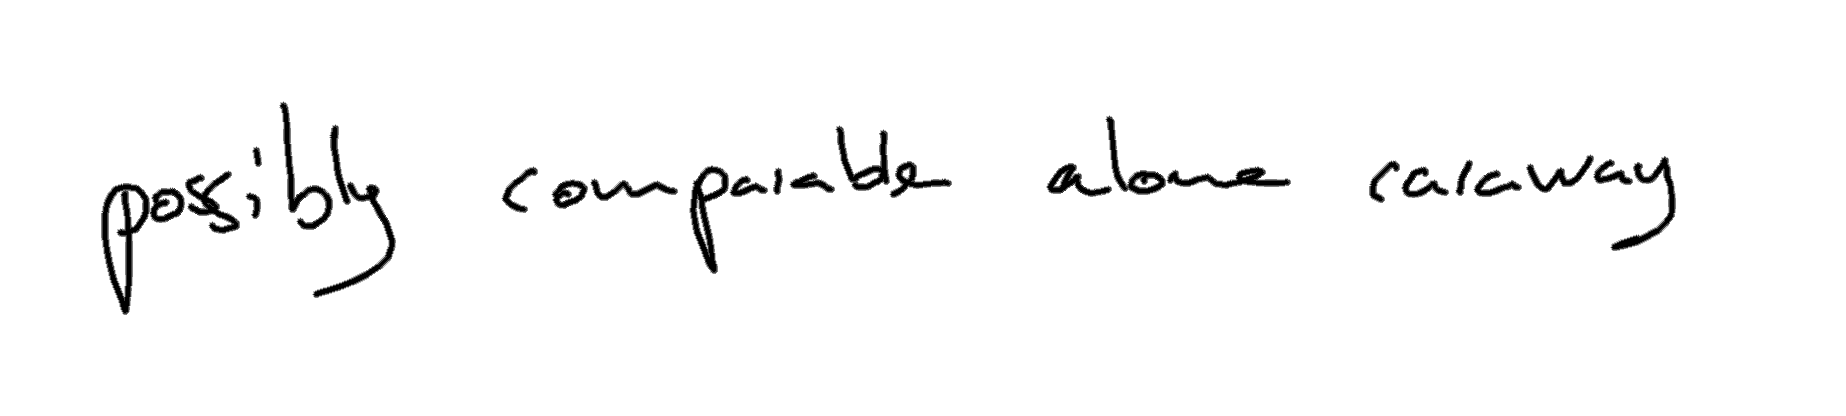 possibly comparable alone caraway